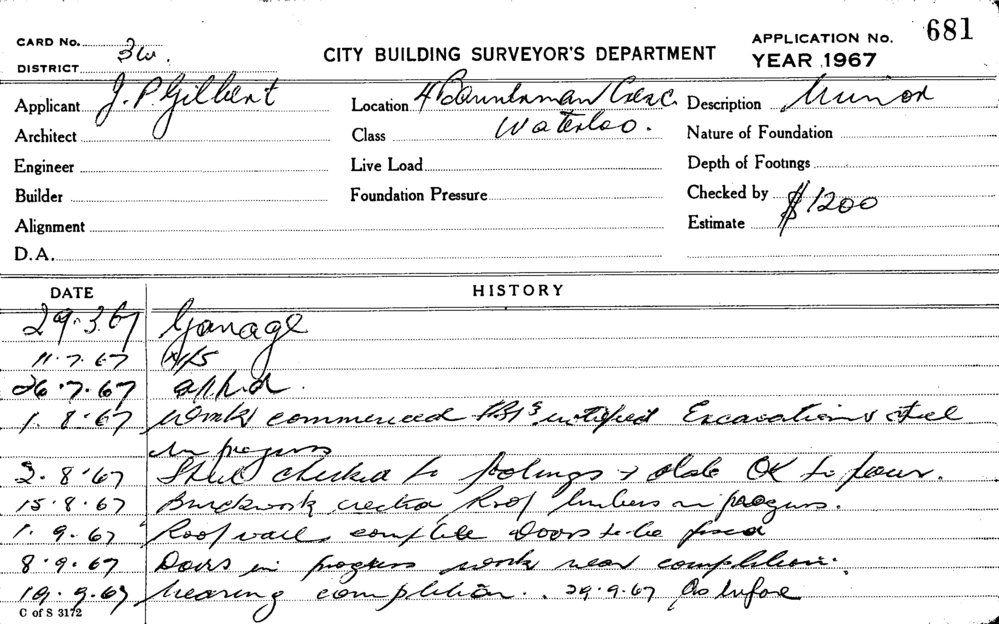 681
CARD No. 3W. CITY BUILDING SURVEYOR'S DEPARTMENT APPLICATION No.
DISTRICT YEAR 1967
Applicant J. P Gilbert Location 4 Cresc. Description Minor
Architect Class Waterloo. Nature of Foundation
Engineer Live Load Depth of Footings
Builder Foundation Pressure Checked by
Alignment Estimate $1200
D.A.
DATE HISTORY
29.3.67 Garage
11.7.67
26.7.67 appd.
1.8.67 Work commenced notified Excavations steel
in progress
2.8.67 Steel checked to footings + slab OK to pour.
15.8.67 Brickwork erected Roof timbers in progress.
1.9.67 Roof complete Doors to be fixed
8.9.67 Doors in progress work near completion.
19.9.67 Nearing completion. 29.9.67 As before
C of S 3172